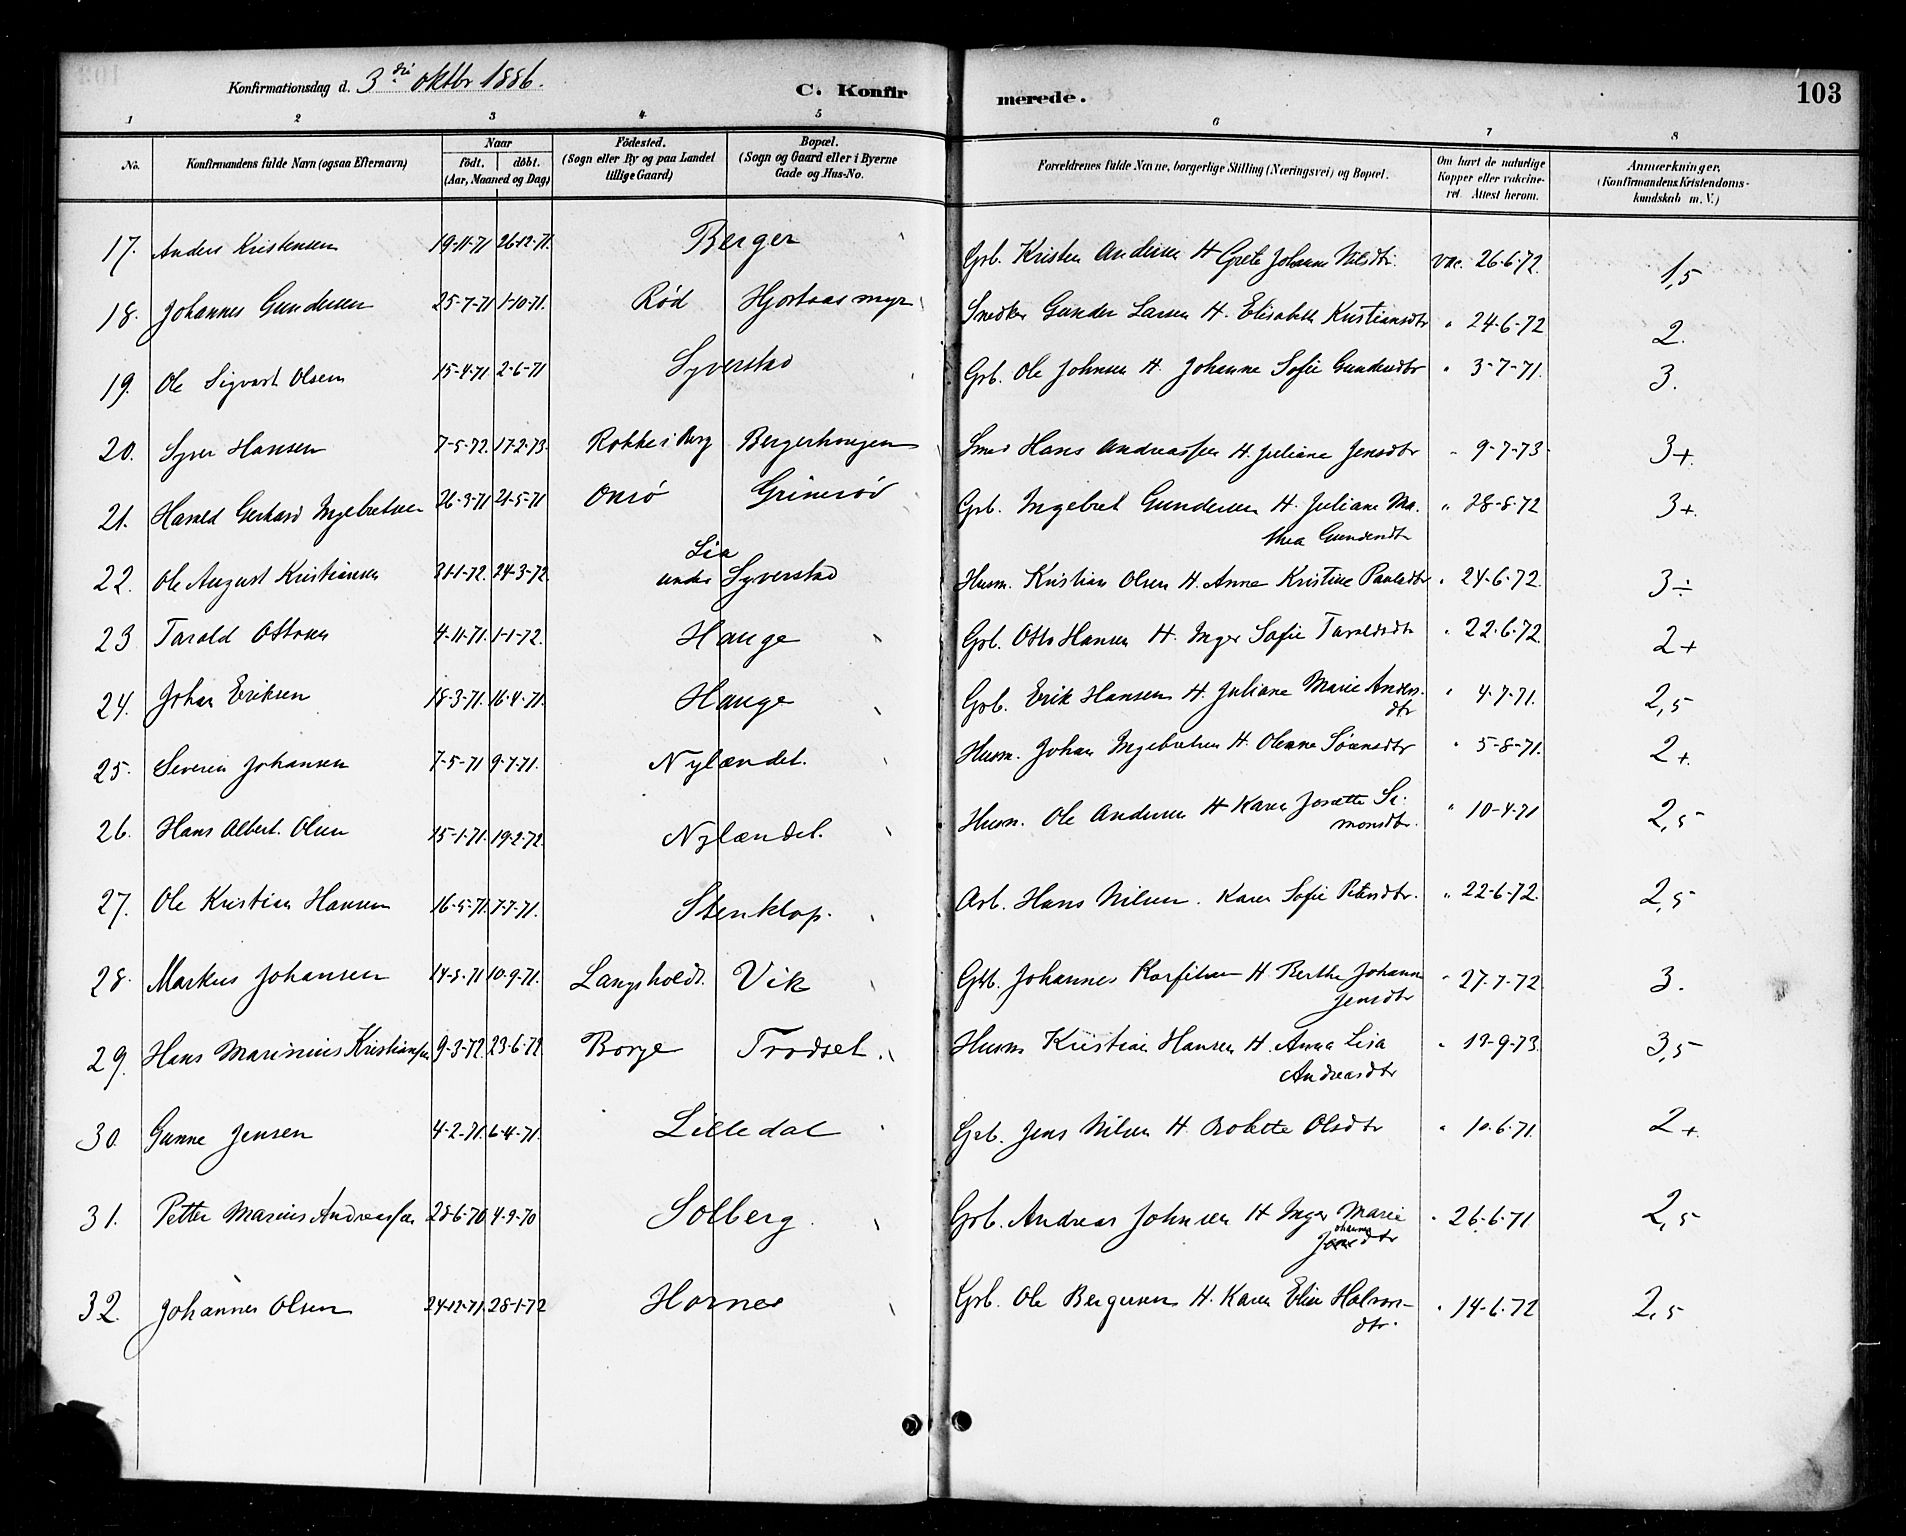 Konfirmationsdag d. 3die oktbr 1886.
C. Konfirmerede.
103
1 2 3 4 5 6 7 8
No. Konfirmandens fulde Navn (ogsaa Efternavn) Naar födt. döbt. (Aar, Maaned og Dag) Födested. (Sogn eller By og paa Landet tillige Gaard) Bopæl. (Sogn og Gaard eller i Byerne Gade og Hus-No. Forældrenes fulde Navne, borgerlige Stilling (Næringsvei) og Bopæl. Om havt de naturlige Kopper eller vakcineret. Attest herom. Anmærkninger. (Konfirmandens Kristendomskundskab m. V.)
17. Anders Kristensen 19-11-71 26-12-71. Berger Grb. Kristen Andersen H Grete Johanne Nilsdtr. vac. 26-6-72. 1,5
18. Johannes Gundersen 25-7-71 1-10-71. Rød Hjortaas myr Snedker Gunder Larsen H. Elisabeth Kristiansdtr " 24-6-72 2.
19. Ole Sigvart Olsen 15-4-71 2-6-71 Syverstad Grb. Ole Johnsen H. Johanne Sofie Gundersdtr " 3-7-71. 3.
20. Syver Hansen 7-5-72. 17-2-73. Rokke i Berg Bergerhaugen Smed Hans Andreassen H. Juliane Jensdtr " 9-7-73 3+.
21. Harald Gerhard Ingebretsen 26-3-71 21-5-71 Onsø Grimsrød Grb. Ingebret Gundersen H. Juliane Ma-
thea Gundersdtr " 28-8-72 3+.
22. Ole August Kristiansen 31-1-72. 24-3-72. Lia
under Syverstad Husm. Kristian Olsen H. Anne Kristine Paulsdtr " 24-6-72. 3÷
23 Tarald Ottosen 4-11-71. 1-1-72. Hauge Grb. Otto Hansen H. Inger Sofie Taraldsdtr " 22-6-72. 2+
24. Johan Eriksen 18-3-71. 16-4-71. Hauge Grb. Erik Hansen H. Juliane Marie Anders-
dtr " 4-7-71. 2,5
25. Severin Johansen 7-5-71 9-7-71. Nylændet. Husm. Johan Ingebretsen H. Olenne Sørensdtr " 5-8-71. 2+.
26. Hans Albert Olsen 15-1-71. 19-2-72. Nylændet. Husm. Ole Andersen H Karen Josette Si-
monsdtr. " 10-4-71 2,5
27. Ole Kristian Hansen 16-5-71. 7-7-71. Stenklop. Arb. Hans Nilsen. Karen Sofie Petersdtr. " 22-6-72. 2,5
28. Markus Johansen 14-8-71 10-9-71. Langsholdt. Vik Grb. Johannes Korfitsen H Berthe Johanne
Jensdtr " 27-7-72. 3.
29. Hans Marinius Kristiansen 9-3-72 23-6-72 Borge Trodset. Husm Kristian Hansen H. Anna Lisa
Andreasdtr " 13-9-73. 3,5
30. Gunne Jensen 4-2-71. 6-4-71. Lilledal Grb. Jens Nilsen H. Bolette Olsdtr " 10-6-71. 2+.
31. Petter Marius Andreassen 28-6-70 4-9-70 Solberg Grb. Andreas Johnsen H Inger Marie
Johannesdtr " 26-6-71. 2,5
32. Johannes Olsen 24-12-71. 28-1-72 Hornes Grb. Ole Bergersen H. Karen Elise Halvors-
dtr. " 14-6-72 2,5